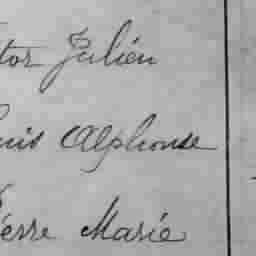 tor Julien
uis Alphonse
ierre Marie